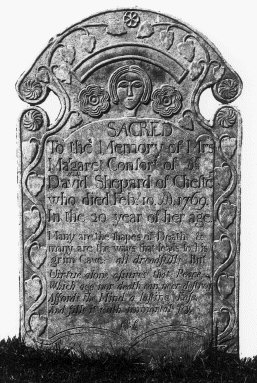 SACRED
To the Memory of Mrs
Magaret Consort of Mr
David Shepard of Chester
who died Feb. 10. 1769.
In the 20 year of her age
Many are the shapes of Death &
many are the ways that lead to his
grim Cave all dreadfull; But
Virtue alone assures that Peace
Which age nor death can neer destroy
Affords the Mind a lasting
and fills it with immortal Joy